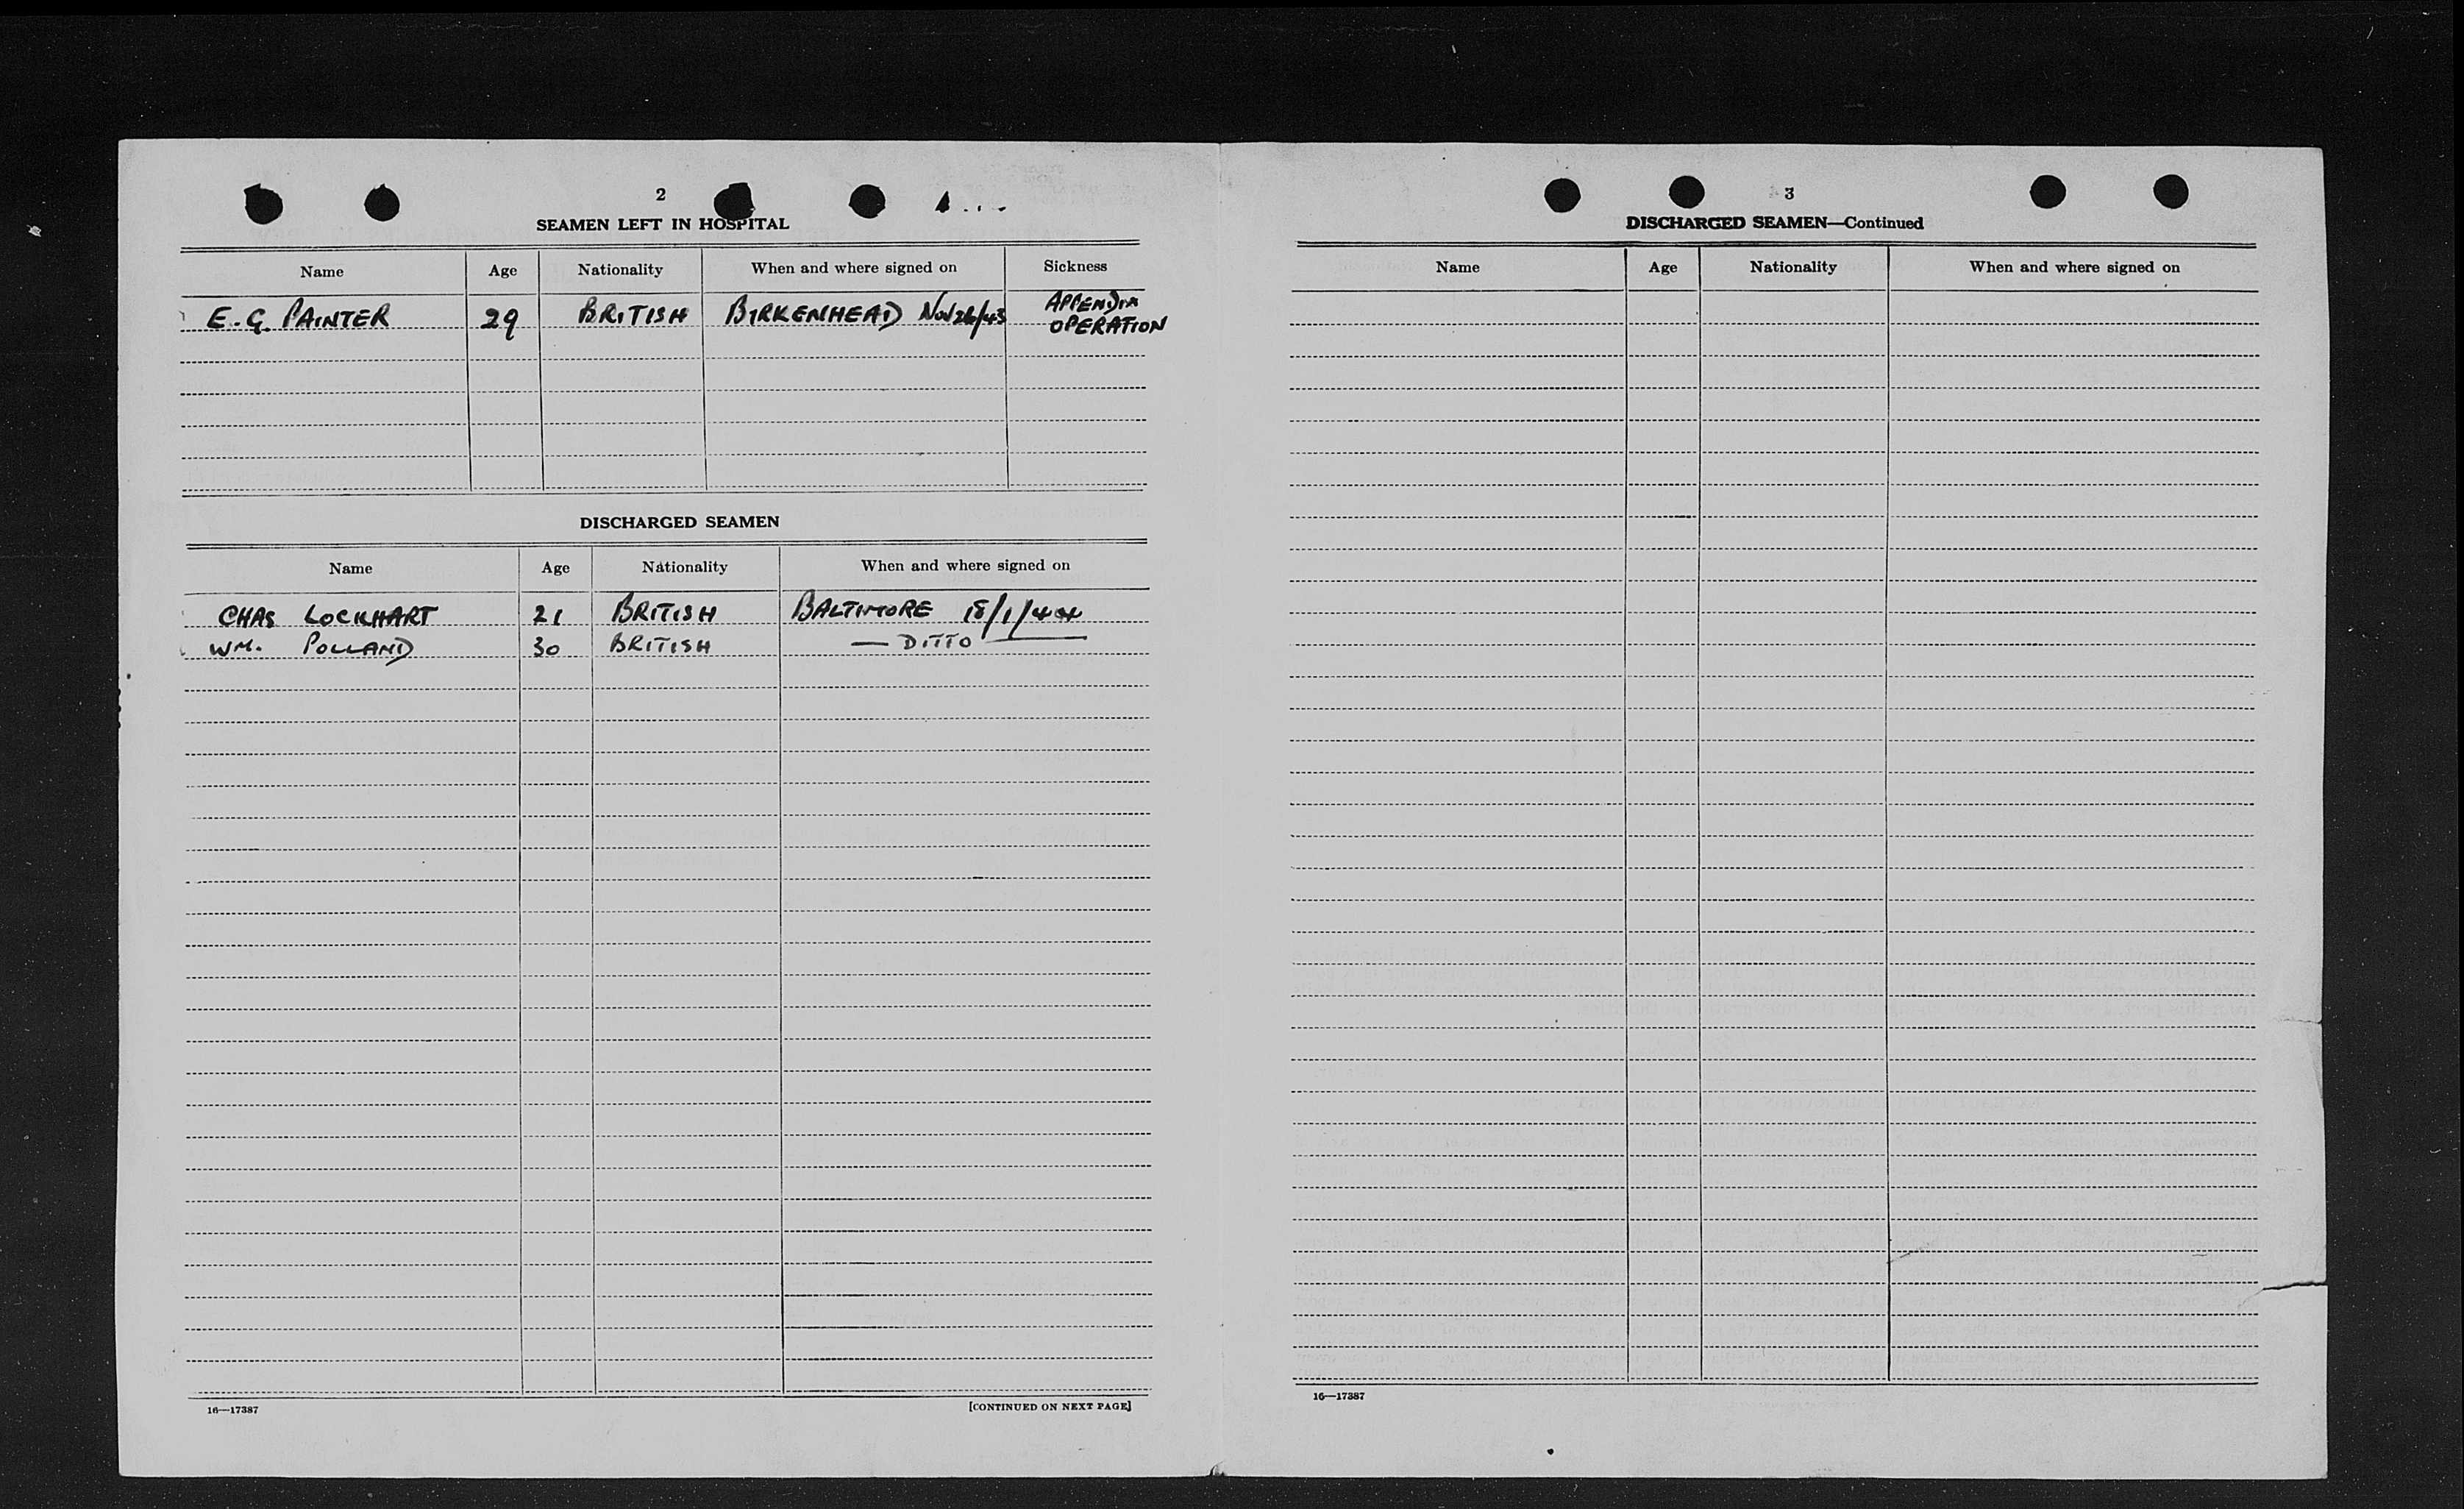 2
SEAMEN LEFT IN HOSPITAL
Name Age Nationality When and where signed on Sickness
E. G. PAINTER 29 BRITISH BIRKENHEAD Nov 26/43 APPENDIX
OPERATION
DISCHARGED SEAMEN
Name Age Nationality When and where signed on
CHAS LOCKHART 21 BRITISH BALTIMORE 18/1/44
WM. POLLAND 30 BRITISH — DITTO —
16—17387 [CONTINUED ON NEXT PAGE]
3
DISCHARGED SEAMEN—Continued
Name Age Nationality When and where signed on
16—17387